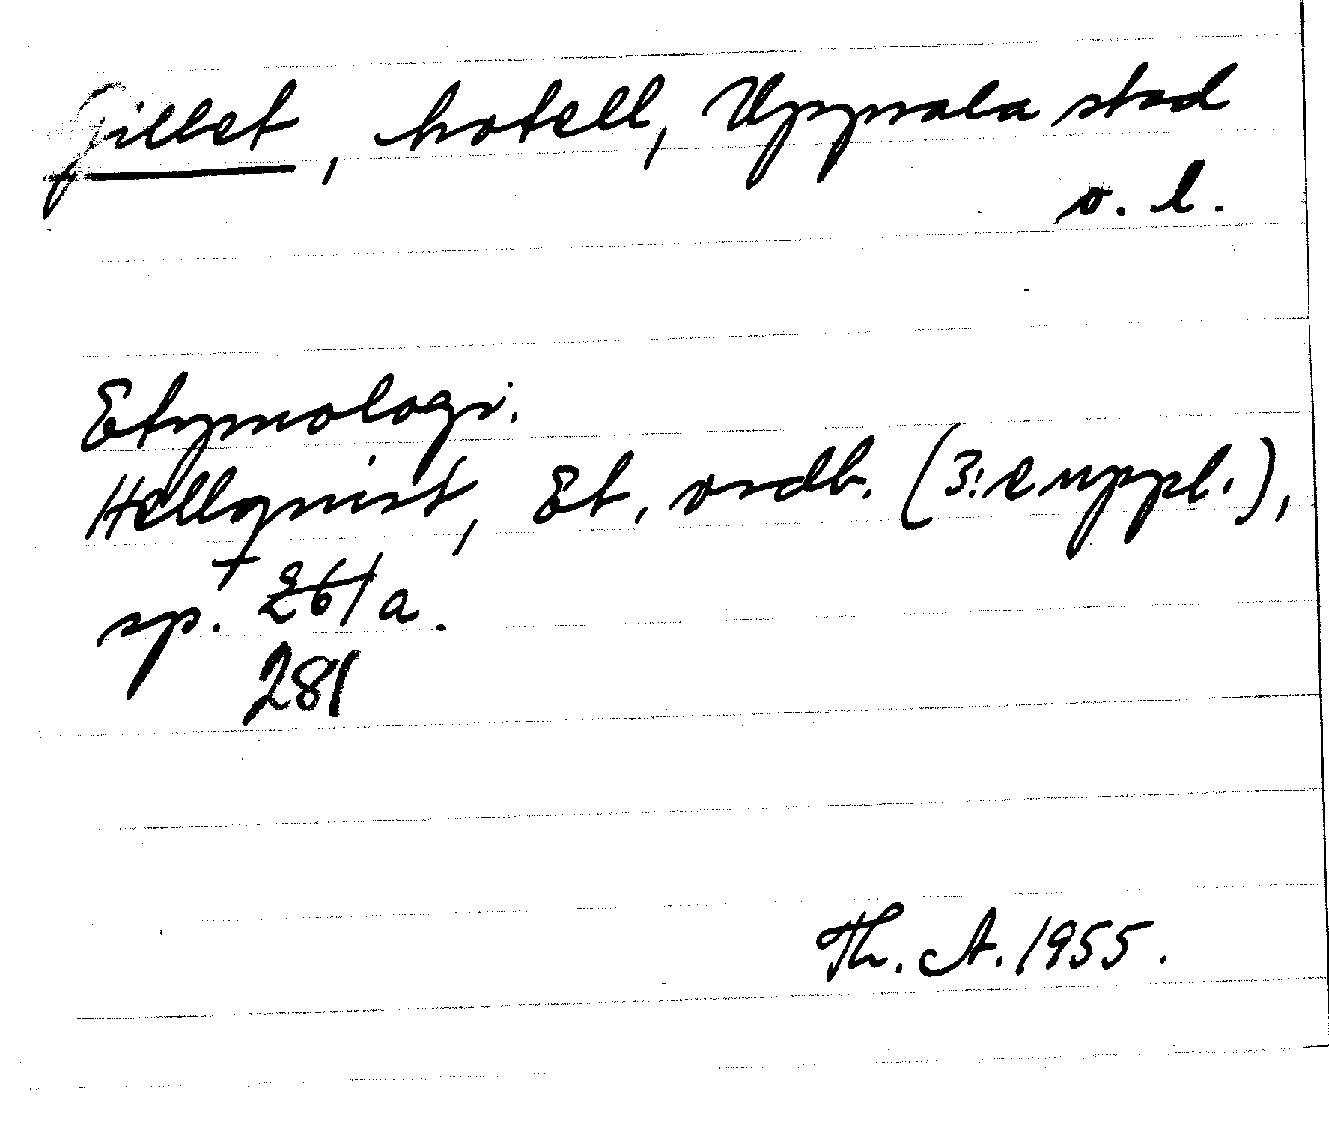 Gillet, hotell, Uppsala stad
o. l.
Etymologi.
Hellquist, Et. ordb. (3:e uppl.),
sp. 261 a.
281
Th. A. 1955.